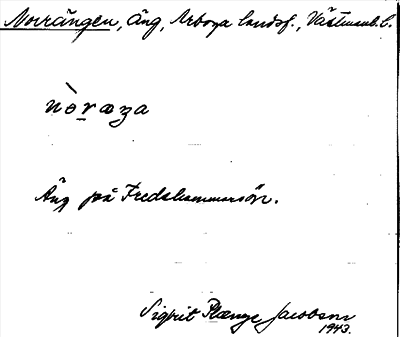 Norrängen, Äng, Arboga landsf., Västmanl. l.
nòræŋa
Äng på Fredshammarsön.
Sigrit Plænge Jacobson
1943.